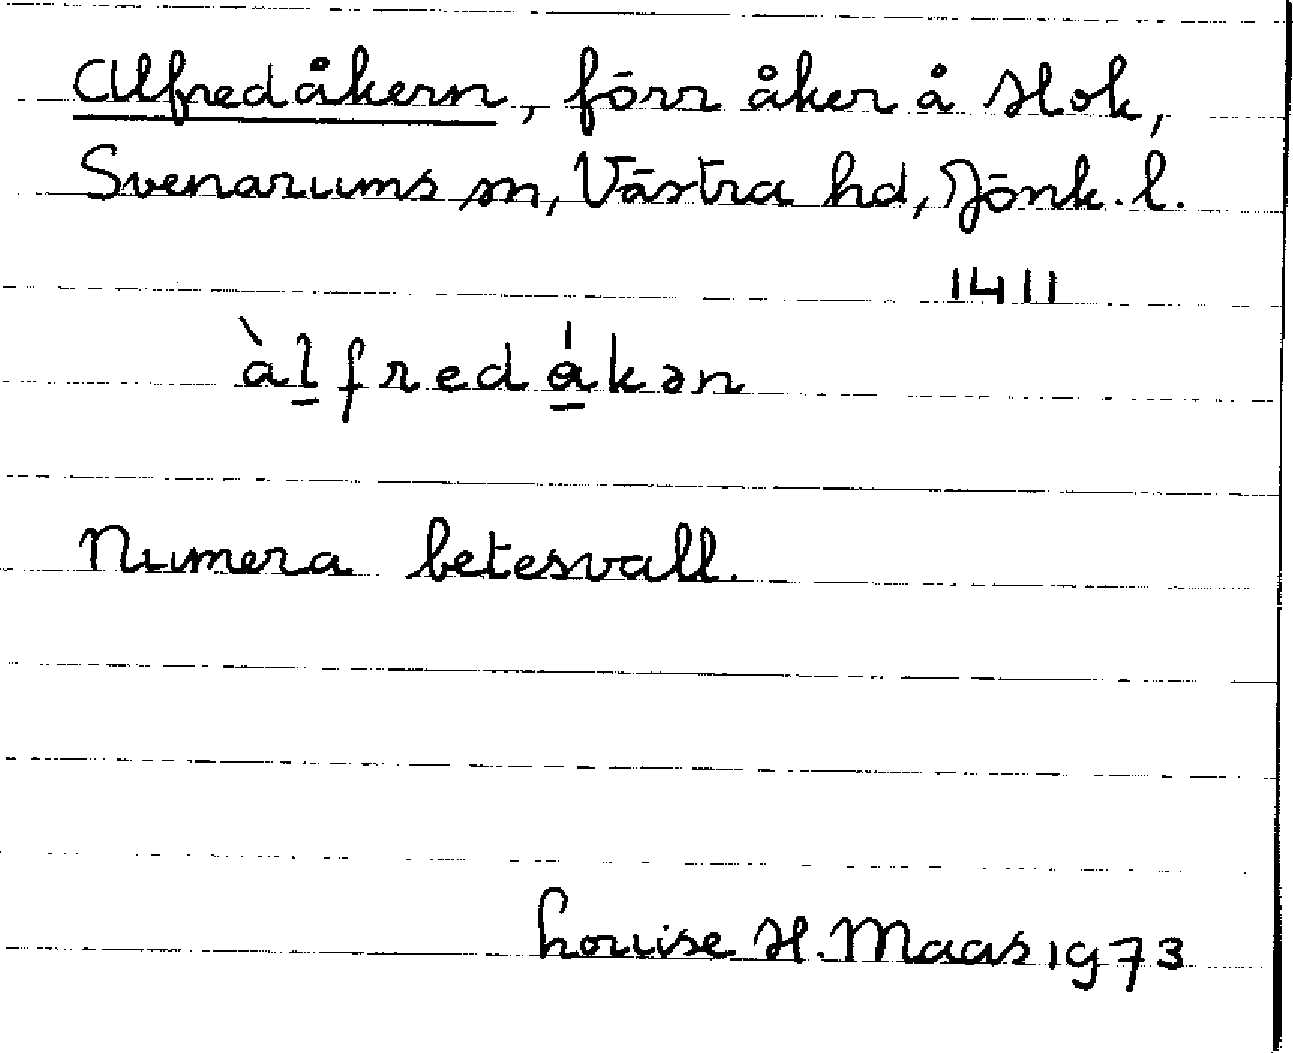 Alfredåkern, förr åker å Hok,
Svenarums sn, Västra hd, Jönk. l.
1411
àl̲fredǻ̲kən
Numera betesvall.
Louise H. Maas 1973